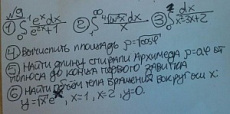 №9
① ∫₀¹ eˣdx/(eˣ+1) ② ∫₁^∞ dx/x ③ ∫₀ dx/(x²-3x+2)
④ Вычислить площадь ρ=√cosφ
⑤ Найти длину спирали Архимеда ρ=aφ от
полюса до конца первого завитка
⑥ Найти объём тела вращения вокруг оси x:
y=√x eˣ, x=1, x=2, y=0.